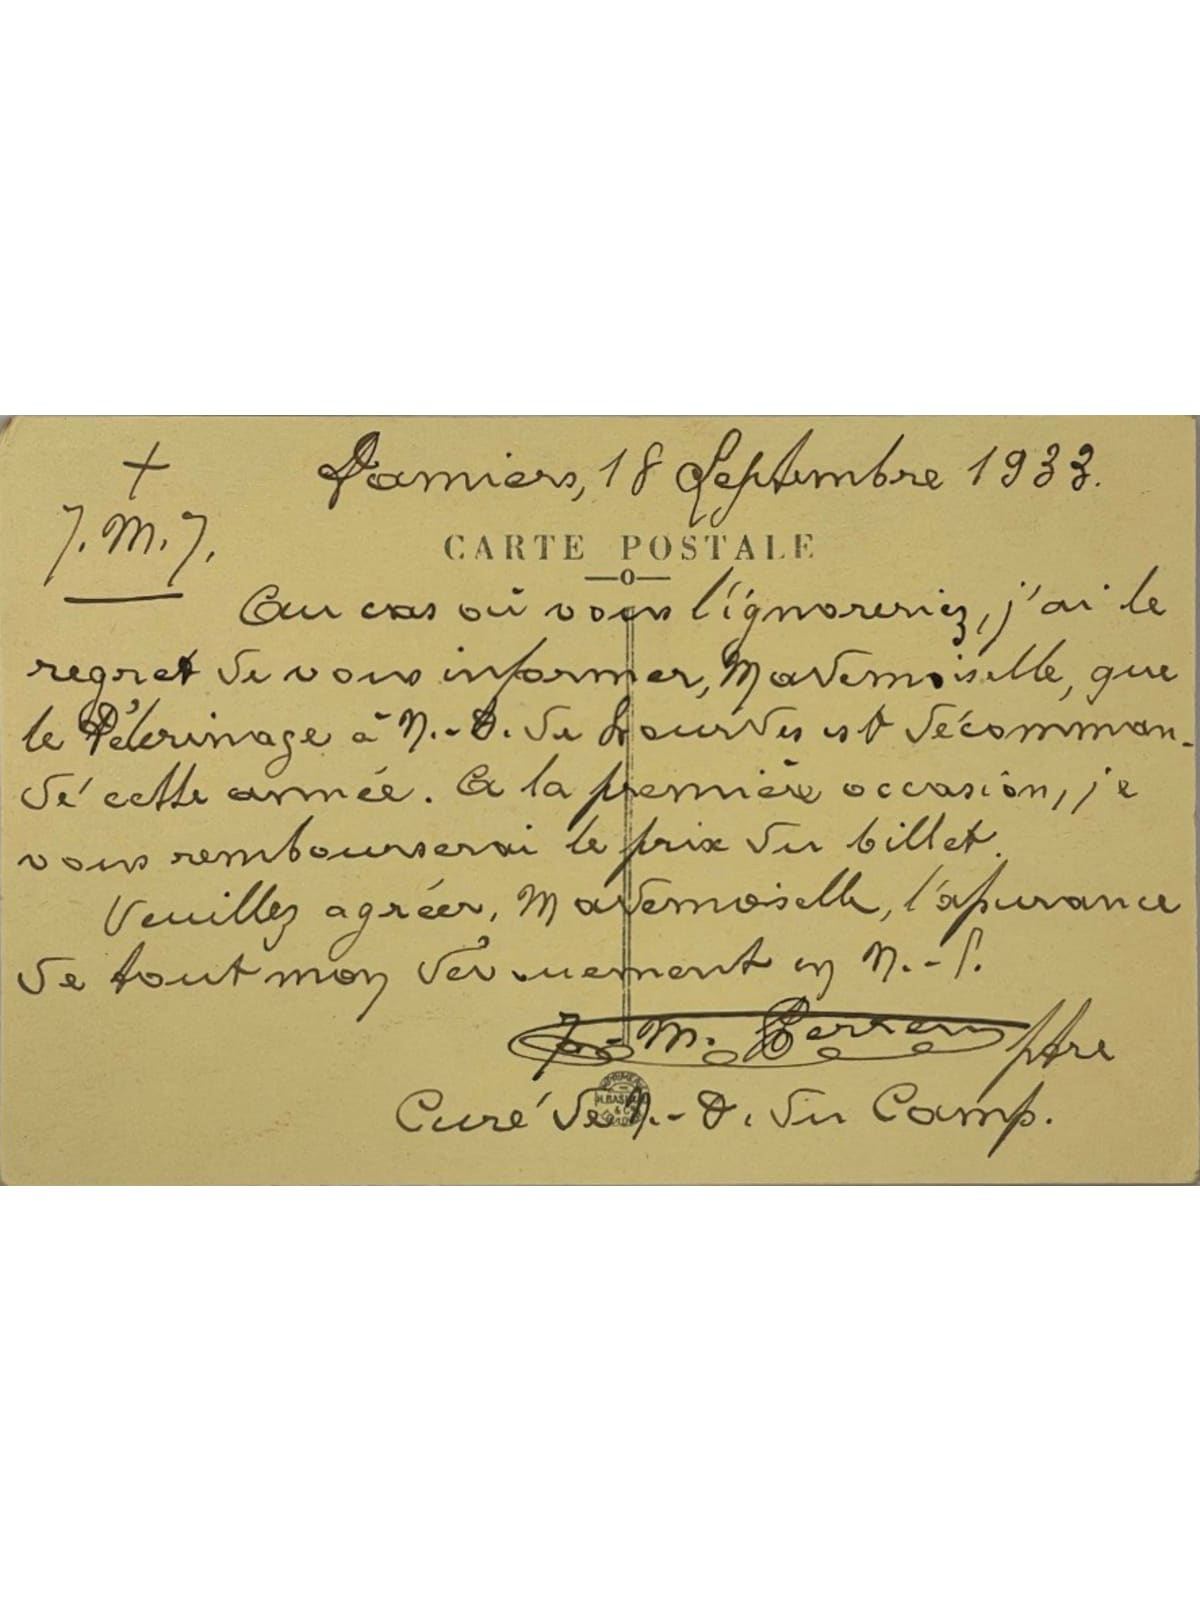 +
J. M. J.
Pamiers, 18 Septembre 1933.
CARTE POSTALE
Au cas où vous l'ignoreriez, j'ai le
regret de vous informer, Mademoiselle, que
le Pélerinage à N.-D. de Lourdes est décomman-
dé cette année. A la première occasion, je
vous rembourserai le prix du billet.
Veuillez agréer, Mademoiselle, l'assurance
de tout mon dévouement en N.-S.
J.-M. ptre
Curé de N.-D. du Camp.